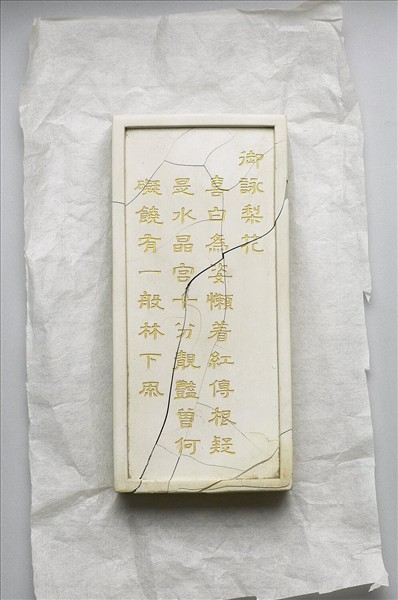 御詠梨花
喜白為姿懶着紅傳根疑
是水晶宮十分靚豔曾何
礙饒有一般林下風